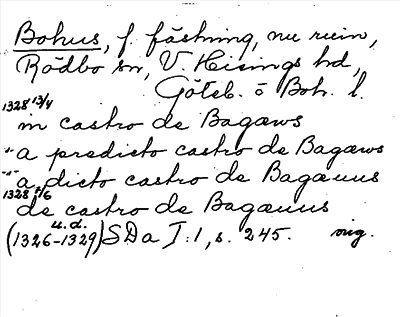 Bohus, f. fästning, nu ruin,
Rödbo sn, V. Hisings hd,
Göteb. o Boh. l.
1328 13/4
in castro de Bagæws
-"- a predicto castro de Bagæws
-"- a dicto castro de Bagæuus
1328 2/6
de castro de Bagæuus
u.d.
(1326-1329) SDa I:1, s. 245. orig.